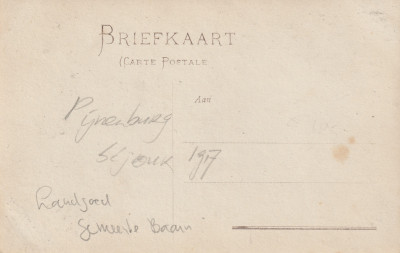 BRIEFKAART
(CARTE POSTALE
Aan
Pijnenburg
1917
Landgoed
Gemeente Baarn